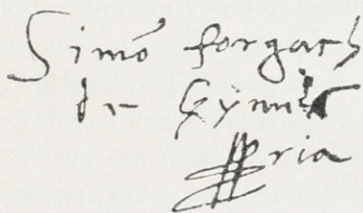 Simō forgach
de Gÿmes
ppria